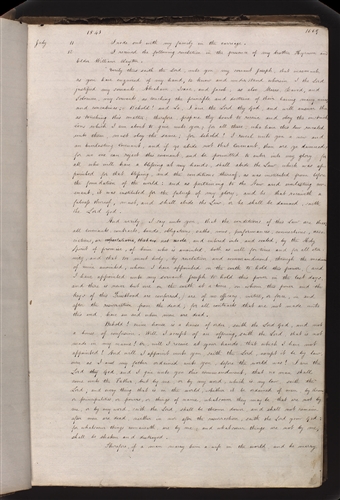 1843
July
I rode out with my family in the carriage.
I received the following revelation in the presence of my brother Hyrum and
Elder William Clayton.
Verily thus saith the Lord, unto you, my servant Joseph, that inasmuch
as you have enquired of my hand, to know and understand wherein I the Lord
justified my servants Abraham, Isaac, and Jacob; as also Moses, David, and
Solomon, my servants, as touching the principle and doctrine of their having many wives
and concubines: Behold! and lo, I am the Lord thy God, and will answer thee
as touching this matter; therefore, prepare thy heart to receive and obey the instruc
tions which I am about to give unto you; for all those who have this law revealed
unto them, must obey the same; for behold! I reveal unto you a new and
an everlasting covenant, and if ye abide not that covenant, then are ye damned;
for no one can reject this covenant, and be permitted to enter into my glory; for
all who will have a blessing at my hands, shall abide the law, which was ap
pointed for that blessing, and the conditions thereof, as was instituted from before
the foundation of the world; and as pertaining to the new and everlasting cov
enant, it was instituted for the fulness of my glory; and he that receiveth a
fulness thereof, must, and shall abide the law, or he shall be damned, saith
the Lord God.
And verily, I say unto you, that the conditions of this law are these:
all covenants, contracts, bonds, obligations, oaths, vows, performances, connections, asso
ciations, or expectations, that are not made, and entered into, and sealed, by the Holy
Spirit of promise, of him who is anointed, both as well for time and for all eter
nity, and that too most holy, by revelation and commandment, through the medium
of mine anointed, whom I have appointed on the earth to hold this power, and
I have appointed unto my servant Joseph to hold this power in the last days
and there is never but one on the earth at a time, on whom this power and the
keys of this Priesthood are conferred, are of no efficacy, virtue, or force, in and
after the resurrection from the dead; for all contracts that are not made unto
this end, have an end when men are dead.
Behold! mine house is a house of order, saith the Lord God, and not
a house of confusion. Will I accept of an offering, saith the Lord, that is not
made in my name? Or, will I receive at your hands, that which I have not
appointed? And will I appoint unto you, saith the Lord, except it be by law,
even as I and my Father ordained unto you, before the world was? I am the
Lord thy God and I give unto you this commandment, that no man shall
come unto the Father, but by me, or by my word, which is my law, saith the
Lord; and every thing that is in the world, whether it be ordained of men, by thrones,
or principalities, or powers, or things of name, whatsoever they may be, that are not by
me, or by my word, saith the Lord, shall be thrown down, and shall not remain
after men are dead, neither in nor after the resurrection, saith the Lord your God;
for whatsoever things remaineth, are by me; and whatsoever things are not by me,
shall be shaken and destroyed.
Therefore, if a man marry him a wife in the world, and he marry